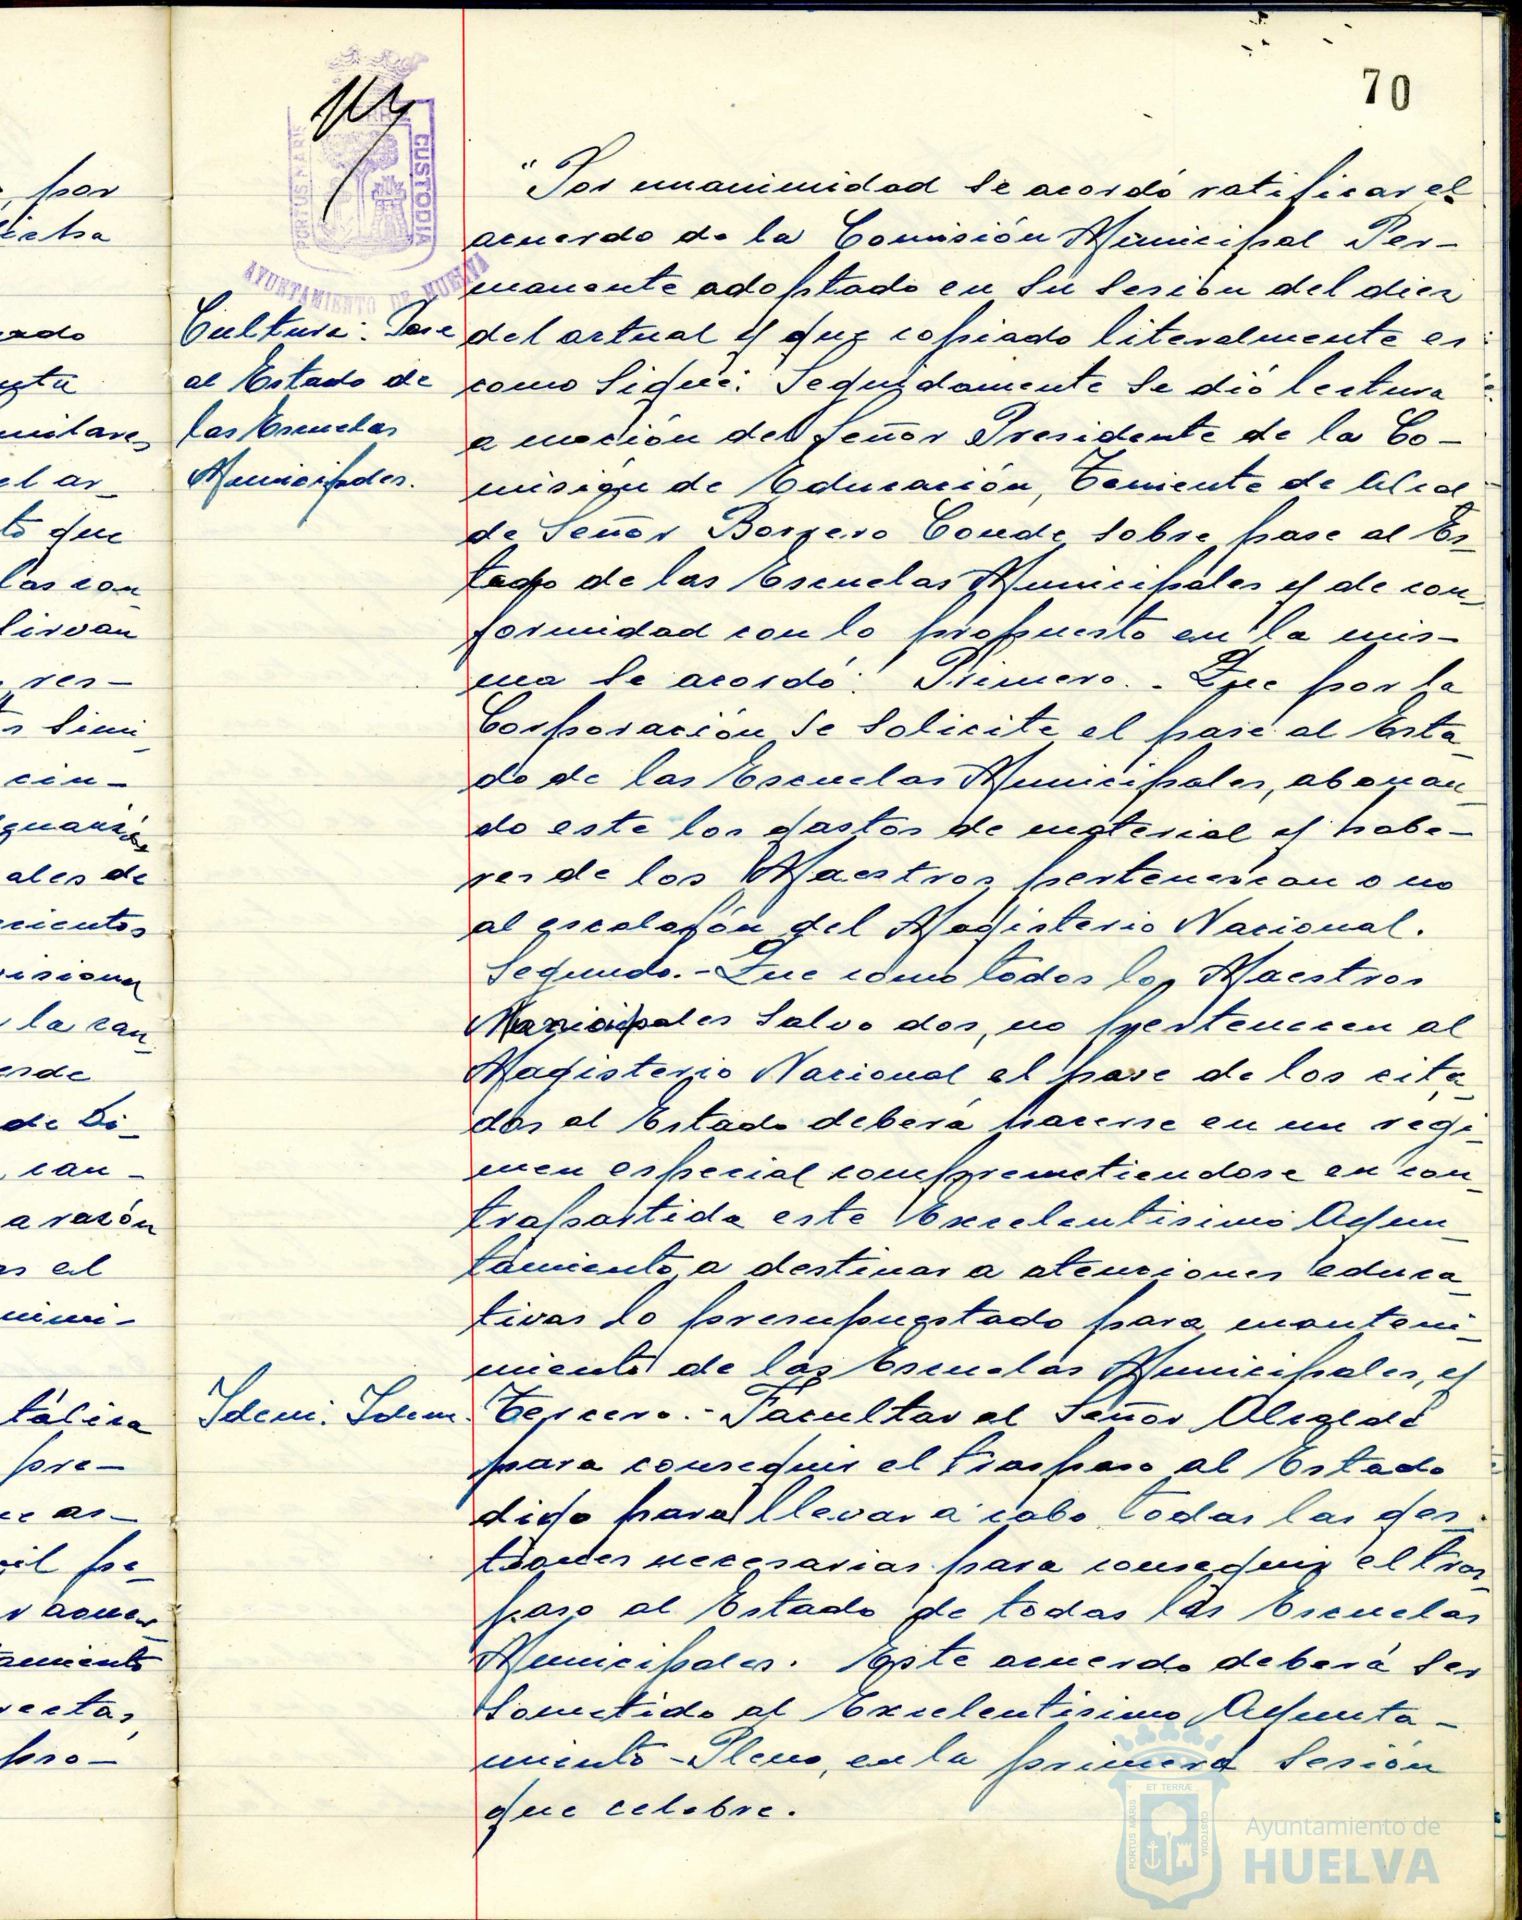 70
PORTUS MARIS
CUSTODIA
AYUNTAMIENTO DE HUELVA
Cultura: Pase
al Estado de
las Escuelas
Municipales.
Idem: Idem.
"Por unanimidad se acordó ratificar el
acuerdo de la Comisión Municipal Per-
manente adoptado en su sesión del diez
del actual y que copiado literalmente es
como sigue: Seguidamente se dió lectura
a moción del Señor Presidente de la Co-
misión de Educación, Teniente de Alcal
de Señor Borrero Conde sobre pase al Es-
tado de las Escuelas Municipales y de con-
formidad con lo propuesto en la mis-
ma se acordó: Primero.- Que por la
Corporación se solicite el pase al Esta-
do de las Escuelas Municipales, abonan-
do este los gastos de material y habe-
res de los Maestros pertenezcan o no
al escalafón del Magisterio Nacional.
Segundo.- Que como todos los Maestros
Municipales salvo dos, no pertenecen al
Magisterio Nacional el pase de los cita-
dos al Estado deberá hacerse en un regi-
men especial comprometiendose en con-
trapartida este Excelentisimo Ayun-
tamiento a destinar a atenciones educa-
tivas lo presupuestado para manteni-
miento de las Escuelas Municipales, y
Tercero.- Facultar al Señor Alcalde
para conseguir el traspaso al Estado
digo para llevar a cabo todas las ges-
tiones necesarias para conseguir el tras-
paso al Estado de todas las Escuelas
Municipales. Este acuerdo deberá ser
sometido al Excelentisimo Ayunta-
miento-Pleno, en la primera sesión
que celebre.
, por
dicha
el ar-
to que
las con-
sirvan
res-
simi-
cin-
ales de
la can-
de Di-
can-
a razón
el
pre-
as-
pro-
ET TERRÆ
PORTUS MARIS
CUSTODIA
Ayuntamiento de
HUELVA